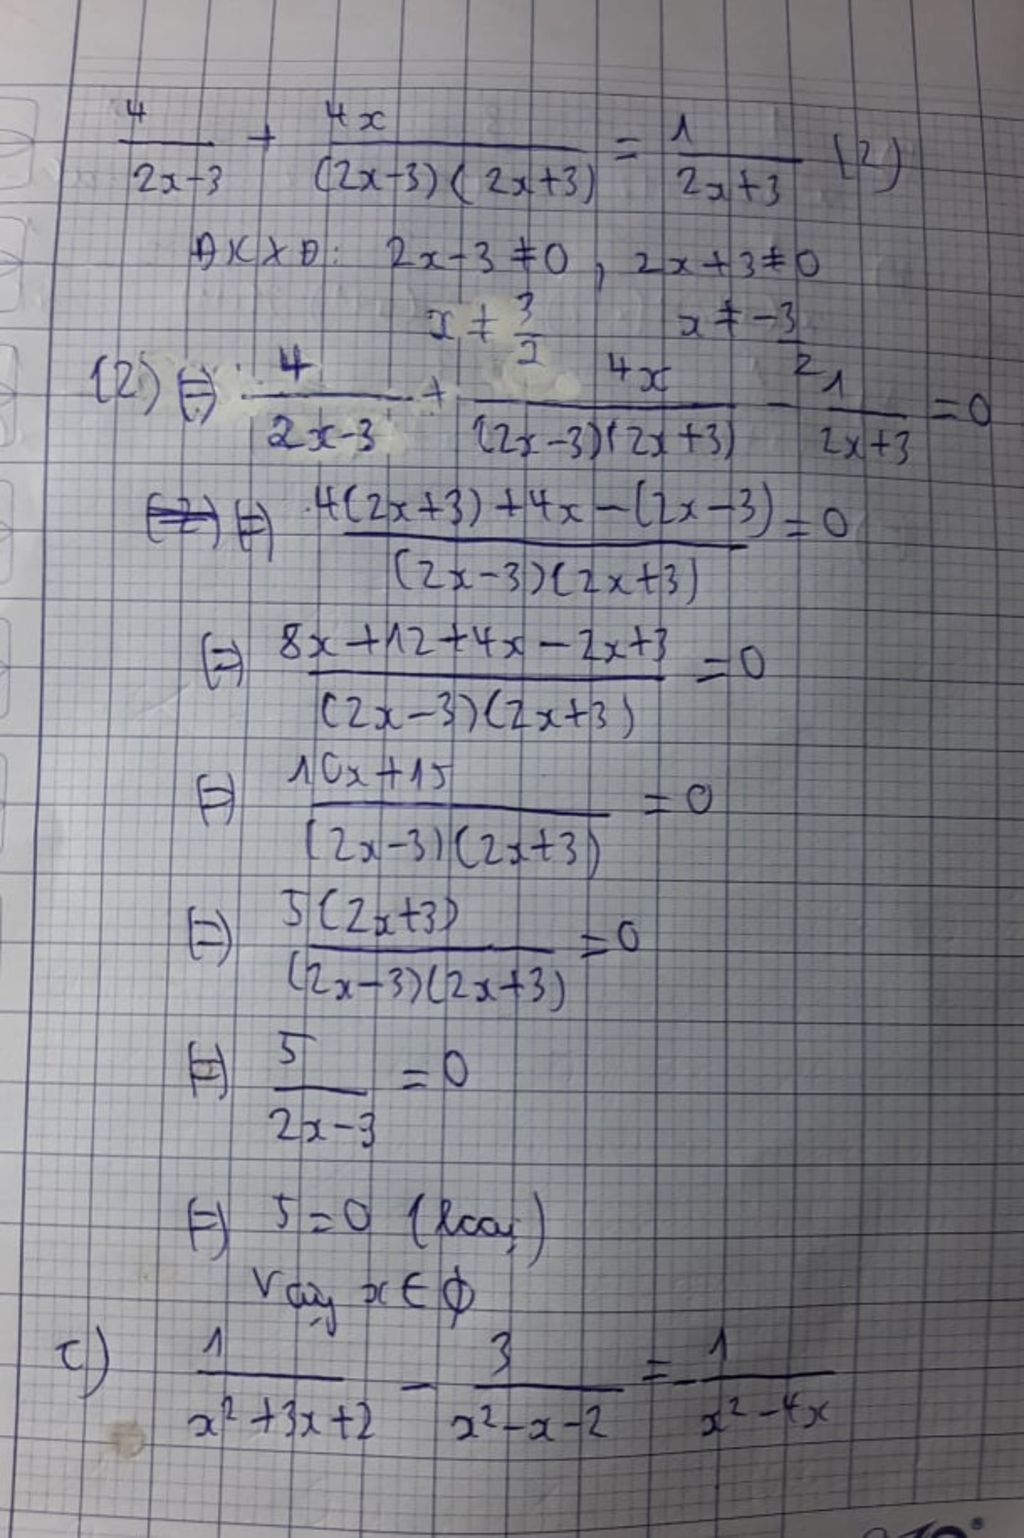 4/(2x-3) + 4x/((2x-3)(2x+3)) = 1/(2x+3) (2)
ĐKXĐ: 2x-3≠0, 2x+3≠0
x≠3/2 x≠-3/2
(2) (=) 4/(2x-3) + 4x/((2x-3)(2x+3)) - 1/(2x+3) = 0
(=) (4(2x+3)+4x-(2x-3))/((2x-3)(2x+3)) = 0
(=) (8x+12+4x-2x+3)/((2x-3)(2x+3)) = 0
(=) (10x+15)/((2x-3)(2x+3)) = 0
(=) 5(2x+3)/((2x-3)(2x+3)) = 0
(=) 5/(2x-3) = 0
(=) 5=0 (loại)
Vậy x∈ϕ
c) 1/(x²+3x+2) - 3/(x²-x-2) = -1/(x²-4x